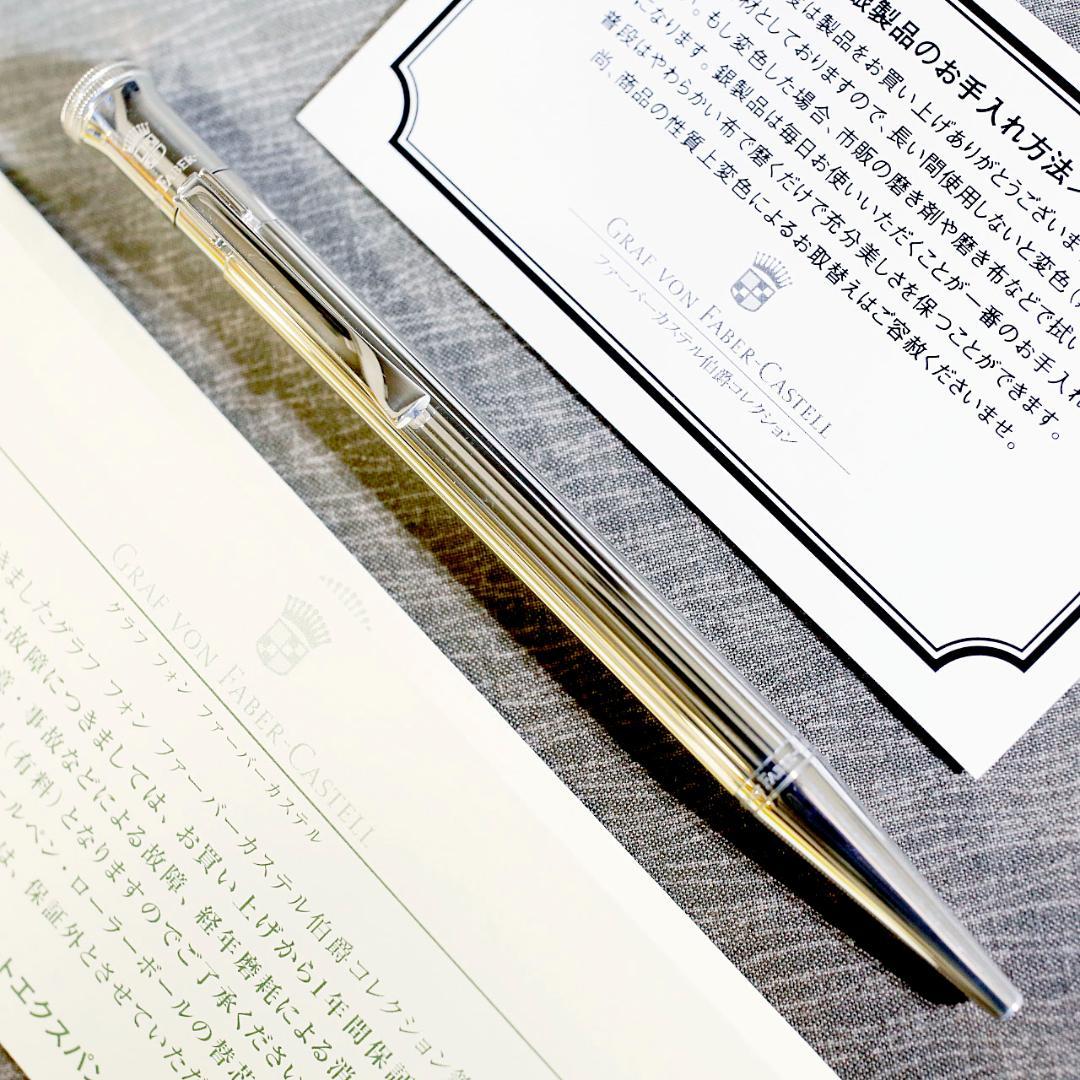 銀製品のお手入れ方法
度は製品をお買い上げありがとうございま
材としておりますので、長い間使用しないと変色（
い。もし変色した場合、市販の磨き剤や磨き布などで拭い
になります。銀製品は毎日お使いいただくことが一番のお手入れ
普段はやわらかい布で磨くだけで充分美しさを保つことができます。
尚、商品の性質上変色によるお取替えはご容赦くださいませ。
GRAF VON FABER-CASTELL
ファーバーカステル伯爵コレクション
GRAF VON FABER-CASTELL
グラフ フォン ファーバーカステル
きましたグラフ フォン ファーバーカステル伯爵コレクション
た故障につきましては、お買い上げから1年間保証
意・事故などによる故障、経年磨耗による消
（有料）となりますのでご了承ください
ールペン・ローラーボールの替芯
は、保証外とさせていただ
トエクスパン